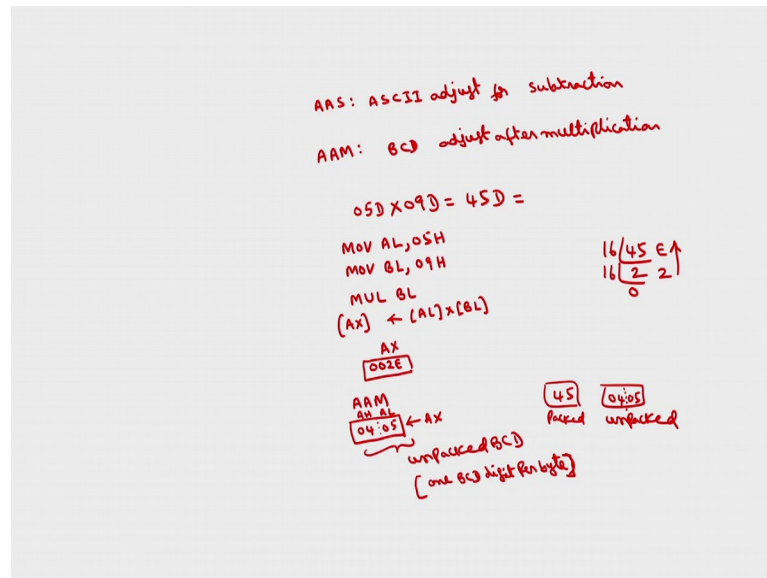 AAS: ASCII adjust for subtraction
AAM: BCD adjust after multiplication
05D X 09D = 45D =
MOV AL, 05H
MOV BL, 09H
MUL BL
[AX] ← [AL] x [BL]
16 45 E
16 2 2
0
AX
002E
AAM
AH AL
04:05 ← AX
unpacked BCD
[one BCD digit per byte]
45 04:05
Packed unpacked